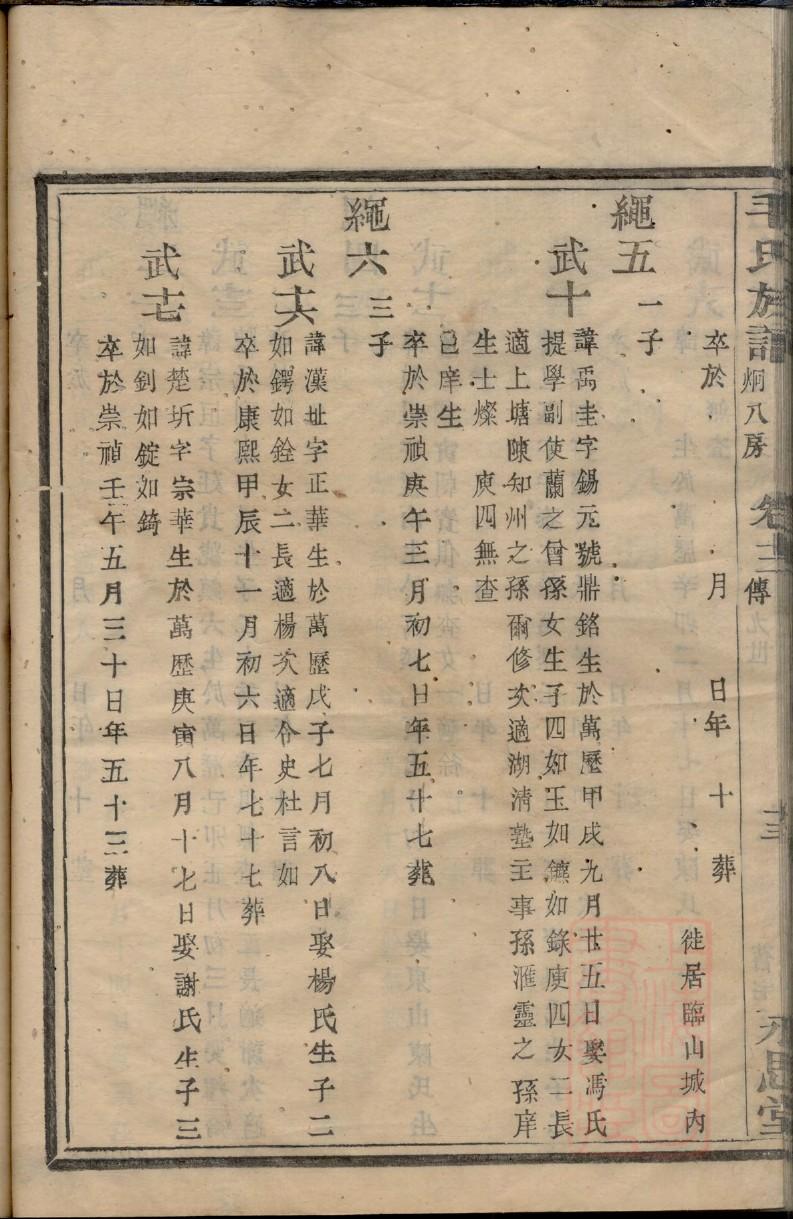 毛氏族譜 炯八房 卷十二 傳 永思堂
卒於 月 日年 十 葬 徙居臨山城內
繩五 一子
武十 諱禹圭字錫元號鼎銘生於萬歷甲戌九月廿五日娶馮氏
提學副使蘭之曾孫女生子四如玉如鑣如錄庚四女二長
適上塘陳知州之孫爾修次適湖清塾主事孫滙靈之孫庠
生士燦 庚四無查
邑庠生
卒於崇禎庚午三月初七日年五十七葬
繩六 三子
武十六 諱漢址字正華生於萬歷戊子七月初八日娶楊氏生子二
如鍔如銓女二長適楊次適令史杜言如
卒於康熙甲辰十一月初六日年七十七葬
武十七 諱楚圻字宗華生於萬歷庚寅八月十七日娶謝氏生子三
如釗如錠如錡
卒於崇禎壬午五月三十日年五十三葬